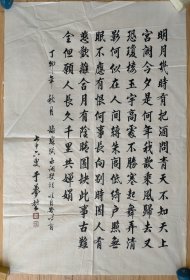 明月幾時有把酒問青天不知天上
宮闕今夕是何年我欲乘風歸去又
恐瓊樓玉宇高處不勝寒起舞弄清
影何似在人間轉朱閣低綺户照無
眠不應有恨何事長向别時圓人有
悲歡離合月有陰晴圓缺此事古難
全但願人長久千里共嬋娟
丁卯年秋月
七十六叟于夢